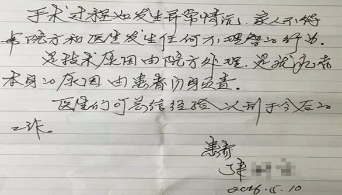 手术过程如发生异常情况，家人不得
与院方和医生发生任何不理智的行为。
是技术原因由院方处理，是我
本身的原因由患者自身负责。
医生们可总结经验以利于今后的
工作。
患者
2016.5.10